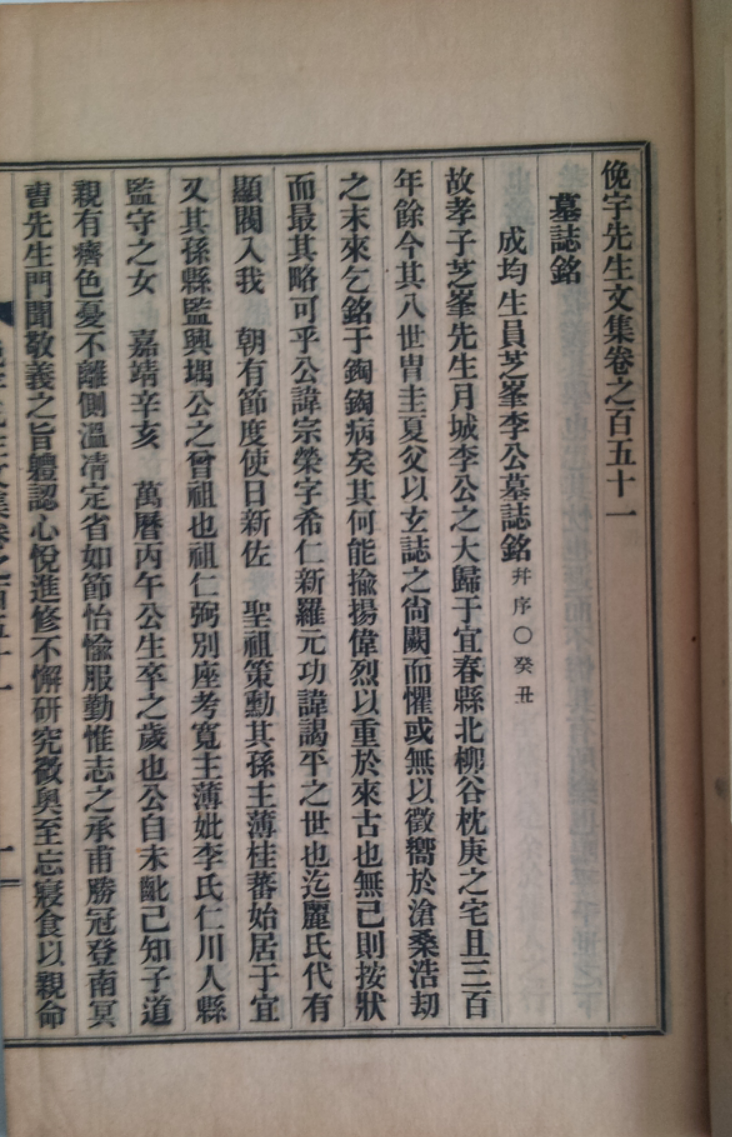 俛宇先生文集卷之百五十一
墓誌銘
成均生員芝峯李公墓誌銘 幷序○癸丑
故孝子芝峯先生月城李公之大歸于宜春縣北柳谷枕庚之宅且三百
年餘今其八世胄圭夏父以玄誌之尙闕而懼或無以徵嚮於滄桑浩刧
之末來乞銘于鋾鋾病矣其何能揄揚偉烈以重於來古也無已則按狀
而最其略可乎公諱宗榮字希仁新羅元功諱謁平之世也迄麗氏代有
顯閥入我 朝有節度使日新佐 聖祖策勳其孫主薄桂蕃始居于宜
又其孫縣監興堣公之曾祖也祖仁弼別座考寬主薄妣李氏仁川人縣
監守之女 嘉靖辛亥 萬曆丙午公生卒之歲也公自未齔已知子道
親有癠色憂不離側溫凊定省如節怡愉服勤惟志之承甫勝冠登南冥
曺先生門聞敬義之旨軆認心悅進修不懈研究微奥至忘寢食以親命